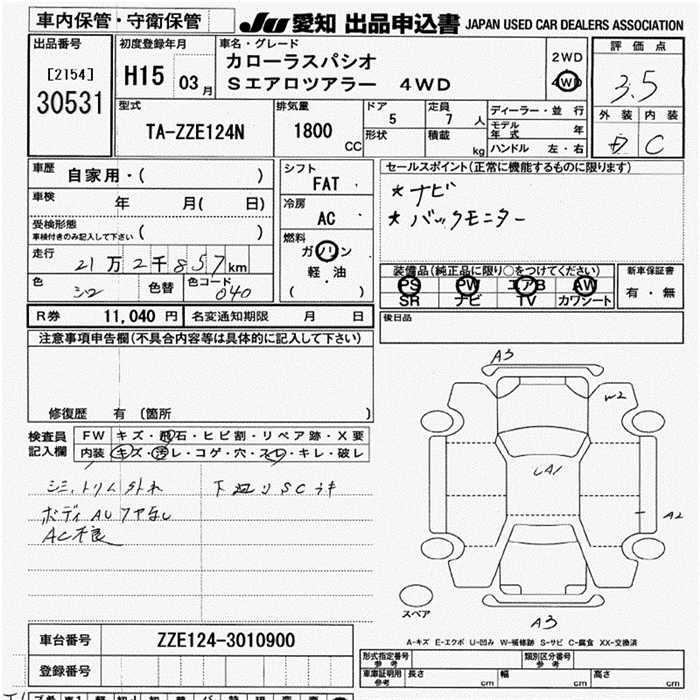 車内保管・守衛保管
JU 愛知 出品申込書 JAPAN USED CAR DEALERS ASSOCIATION
出品番号
[2154]
30531
初度登録年月
H15 03月
車名・グレード
カローラスパシオ
Sエアロツアラー 4WD
2WD
4WD
評価点
3.5
外装 内装
D C
型式
TA-ZZE124N
排気量
1800
CC
ドア
5
定員
7 人
形状
積載
kg
ディーラー・並行
モデル年式 年
ハンドル 左・右
車歴 自家用・( )
車検 年 月( 日)
受検形態
車検付きのみ記入して下さい ( )
走行 21万2千857km
色 シロ 色替 色コード 040
シフト
FAT
冷房
AC
燃料
ガソリン
軽・油
( )
セールスポイント(正常に機能するものに限ります)
* ナビ
* バックモニター
装備品(純正品に限り○をつけてください)
PS PW エアB AW
SR ナビ TV カワシート
新車保証書
有・無
R券 11,040 円 名変通知期限 月 日
後日品
注意事項申告欄(不具合内容等は具体的に記入して下さい)
修復歴 有 (箇所 )
検査員
記入欄
FW キズ・飛石・ヒビ割・リペア跡・X要
内装 キズ・汚レ・コゲ・穴・スレ・キレ・破レ
シミ、トリム外れ
下廻りSCキ
ボディAUフヤなし
AC不良
A3
W2
UA1
A2
A3
スペア
A-キズ E-エクボ U-凹み W-補修跡 S-サビ C-腐食 XX-交換済
車台番号 ZZE124-3010900
登録番号
形式指定番号
参考
類別区分番号
参考
車庫証明用
参考
長さ cm 幅 cm 高さ cm